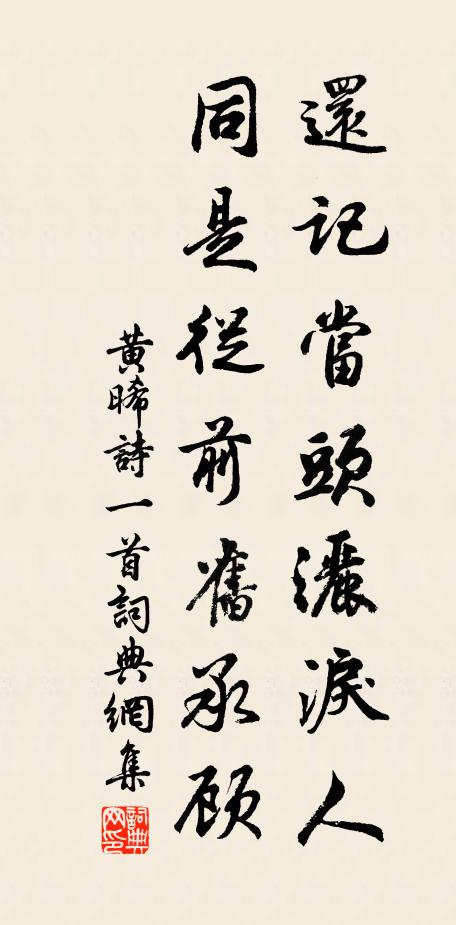 還記當頭灑淚人
同是從前舊承顧
黃晞詩一首詞典網集
詞典網印